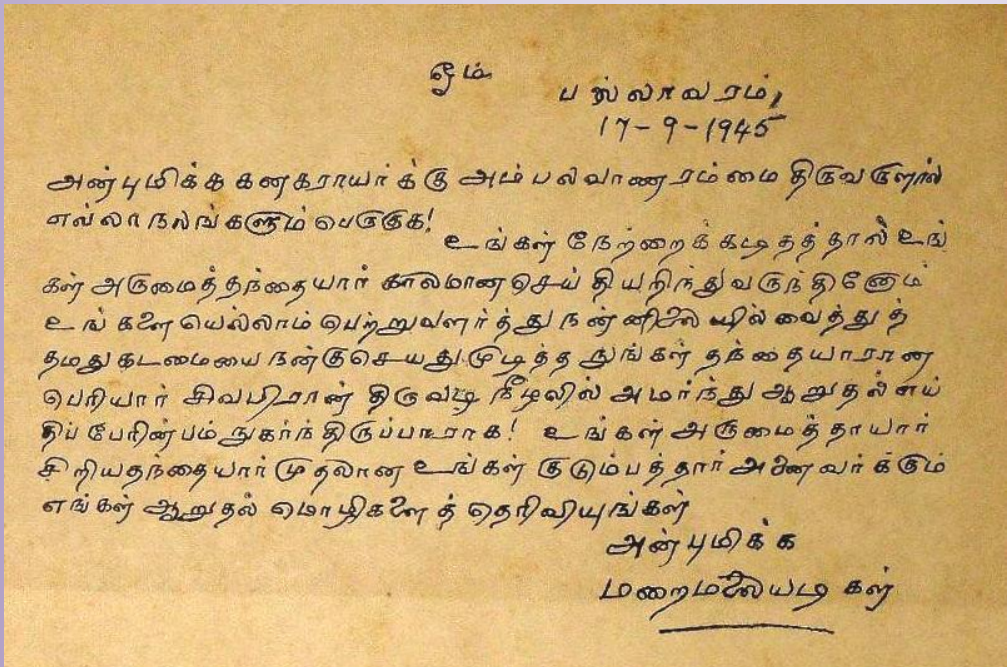 ஓம்
பல்லாவரம்,
17-9-1945
அன்புமிக்க கனகராயர்க்கு அம்பலவாணரம்மை திருவருளால்
எல்லாநலங்களும் பெருகுக!
உங்கள் நேற்றைக்கடிதத்தால் உங்
கள் அருமைத்தந்தையார் காலமான செய்தியறிந்து வருந்தினோம்
உங்களையெல்லாம் பெற்றுவளர்த்து நன்னிலையில் வைத்துத்
தமது கடமையை நன்குசெய்துமுடித்த நுங்கள் தந்தையாரான
பெரியார் சிவபிரான் திருவடி நீழலில் அமர்ந்து ஆறுதல் எய்
திப் பேரின்பம் நுகர்ந்திருப்பாராக! உங்கள் அருமைத்தாயார்
சிறியதந்தையார் முதலான உங்கள் குடும்பத்தார் அனைவர்க்கும்
எங்கள் ஆறுதல் மொழிகளைத் தெரிவியுங்கள்
அன்புமிக்க
மறைமலையடிகள்